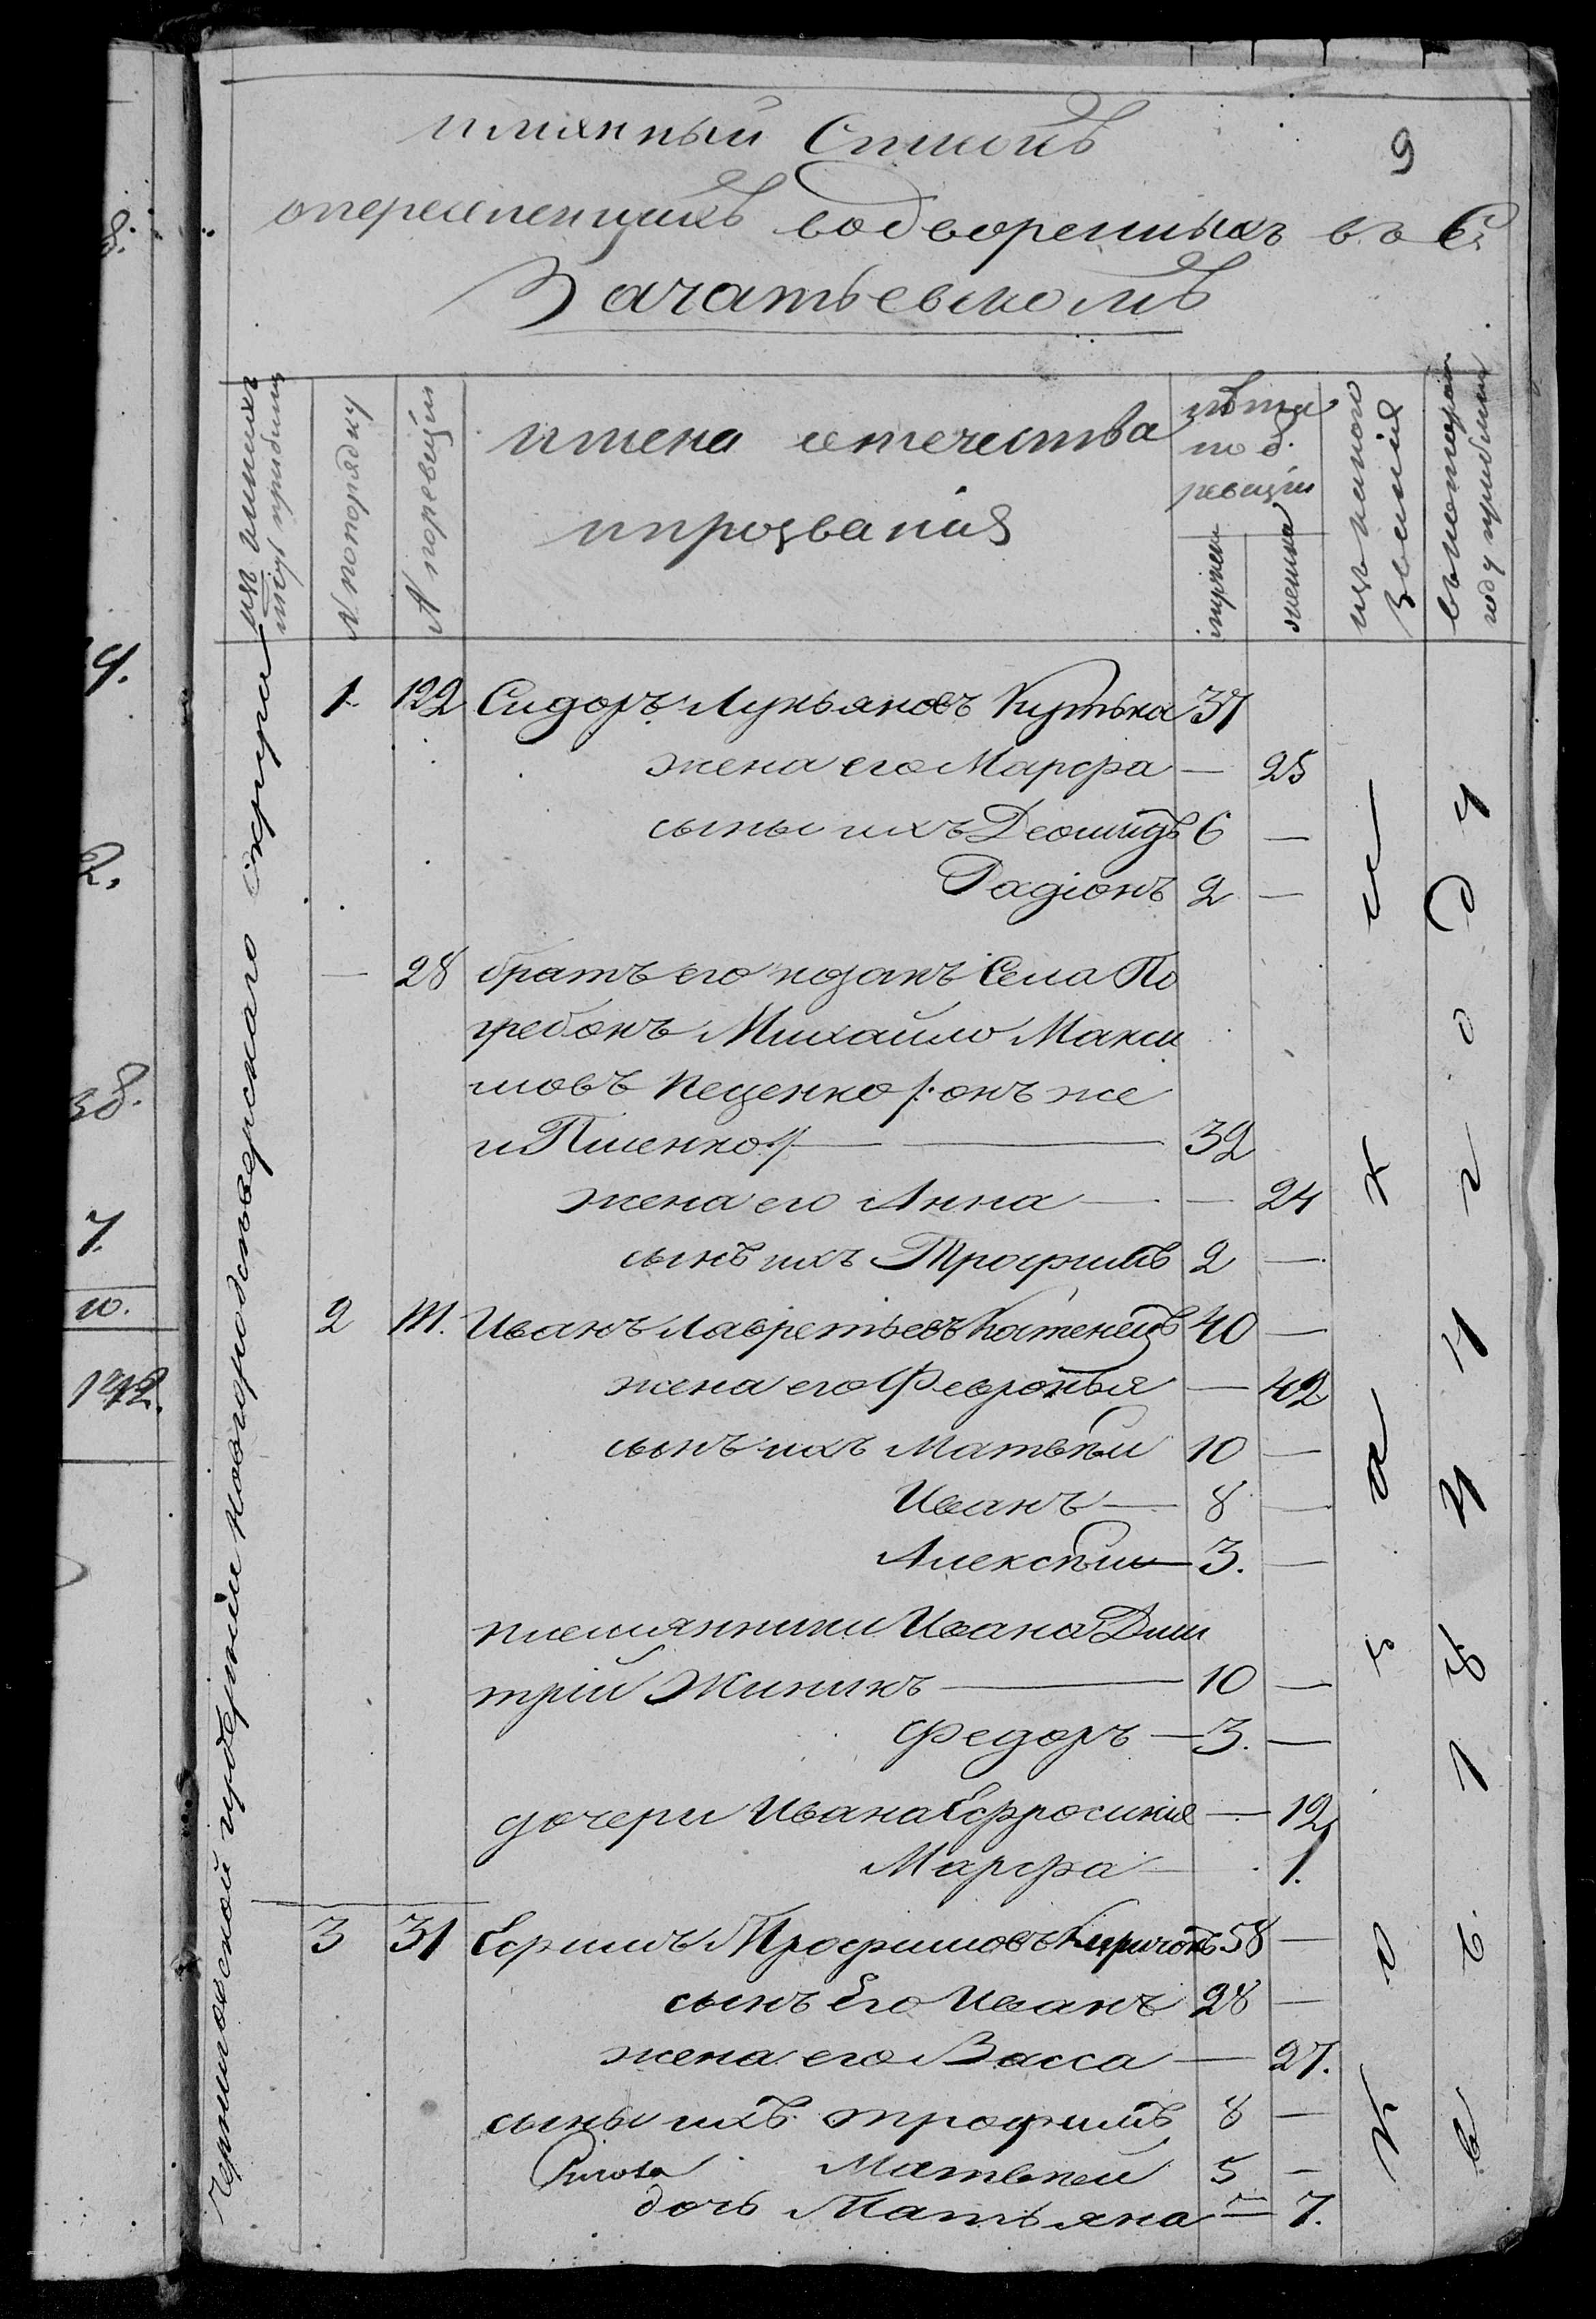 имянный Списокъ
9
опереселенцахъ водворенныхъ въ С.
Зачатьевскомъ
изъ какихъ
мѣстъ прибыли
№ попорядку
№ поревизіи
имена иотечества
ипрозванія
лѣта
по 8.
ревизіи
мужеска
женска
изъ какого
Званія
въкоторомъ
году прибыли
Черниговской губерніи новгородсѣверскаго округа
1 122 Сидоръ Лукьяновъ Кутька 37
жена его Марфа — 25
сыны ихъ Леонидъ 6 —
Радіонъ 2 —
— 28 братъ его козакъ Села По
гребокъ Михайло Макси
мовъ Пеценко /: онъ же
и Пшенко :/ — 32
жена его Анна — — 24
сынъ ихъ Трофимъ 2 —
2 111. Иванъ Лаврентьевъ Катенецъ 40 —
жена его Февронья — 42
сынъ ихъ Матвѣй 10 —
Иванъ — 8 —
Алексѣй — 3. —
племянники Ивана Дми
трій Жиликъ — 10 —
Федоръ — 3. —
дочери Ивана Ефросинія — 12
Марфа — 1.
3 31 Ефимъ Трофимовъ Киричокъ 58 —
сынъ Его Иванъ 28 —
жена его Васса — 27.
сыны ихъ трофимъ 8 —
Матвей 5 —
дочь Татьяна — 7.
Козахи
въ 1844 году
8.
9.
2.
38.
7.
10.
142.